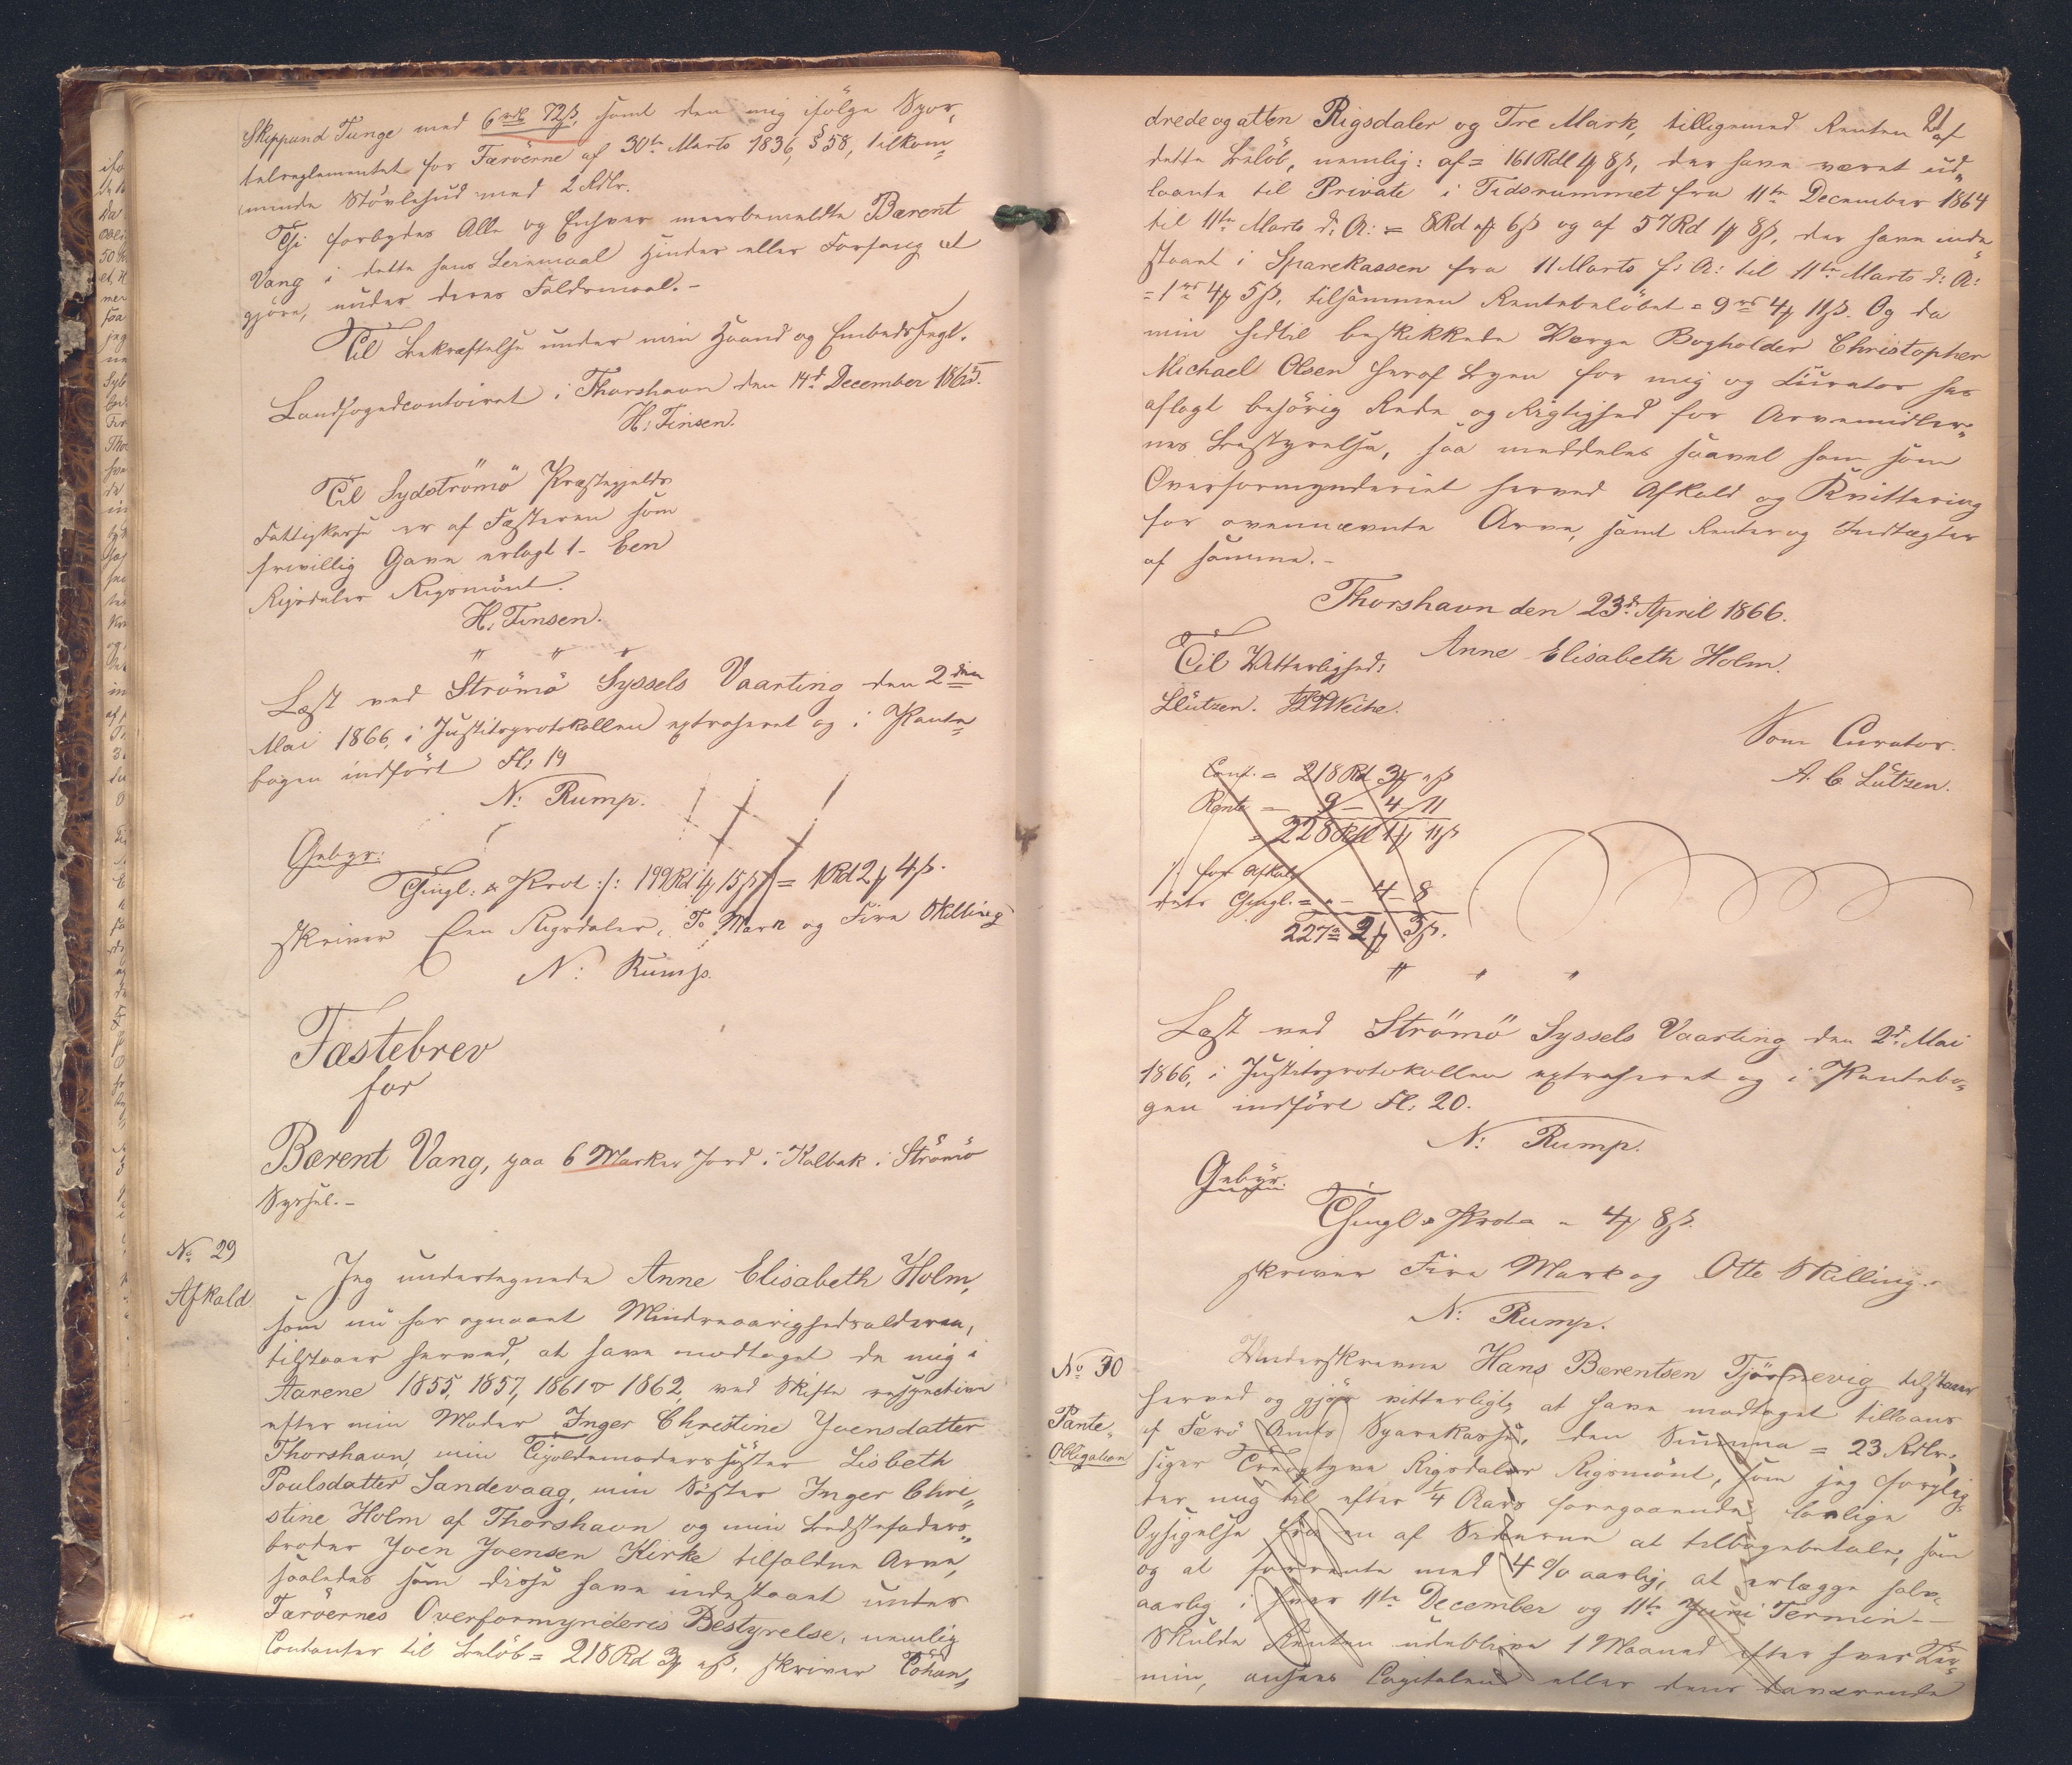 Skippund Tunge med 6 rd 72 ß, samt den mig ifölge Spor„
telreglementet for Færöerne af 30te Marts 1836, § 58, tilkom„
mende Stövlehud med 2 Rdlr.
Thi forbydes Alle og Enhver meerbemeldte Bærent
Vang i dette hans Leiemaal Hinder eller Forfang at
gjöre, under deres Faldsmaal. -
Til Bekræftelse under min Haand og Embedssegl.
Landfogedcontoiret i Thorshavn den 14d December 1865.
H: Finsen.
Til Sydströmö Præstegjelds
Fattigkasse er af Fæsteren som
frivillig Gave erlagt 1 - Een
Rigsdaler Rigsmönt.
H: Finsen.
" " "
Læst ved Strömö Syssels Vaarting den 2den
Mai 1866, i Justitsprotokollen extraheret og i Pante„
bogen indfört Fl: 19
N: Rump.
Gebyr:
Thingl: & Prot :/: 199 Rd 4 ₰ 15 ß = 1 Rd 2 ₰ 4 ß.
skriver Een Rigsdaler, To Mark og Fire Skilling
N: Rump.
Fæstebrev
for
Bærent Vang, paa 6 Marker Jord i Kalbak i Strömö
Syssel. -
No 29
Afkald
Jeg undertegnede Anne Elisabeth Holm,
som nu har opnaaet Mindreaarighedsalderen,
tilstaaer herved, at have modtaget de mig i
Aarene 1855, 1857, 1861 & 1862, ved Skifte respective
efter min Moder Inger Christine Joensdatter
Thorshavn, min Oldemoderssöster Lisbeth
Poulsdatter Sandevaag, min Söster Inger Chri„
stine Holm af Thorshavn og min Bedstefaders„
broder Joen Joensen Kirke tilfaldne Arve,
saaledes som disse have indestaaet under
Færöernes Overformynderis Bestyrelse, nemlig
Contanter til Belöb = 218 Rd 3 ₰ " ß, skriver Tohun„
21
drede og atten Rigsdaler og Tre Mark, tilligemed Renten af
dette Belöb, nemlig: af = 161 Rdl 1 ₰ 8 ß, der have været ud„
laante til Private i Tidsrummet fra 11te December 1864
til 11te Marts d: A: = 8 Rd " ₰ 6 ß og af 57 Rd 1 ₰ 8 ß, der have inde„
staaet i Sparekassen fra 11 Marts f: A: til 11te Marts d: A:
= 1 rd 4 ₰ 5 ß, tilsammen Rentebelöbet = 9 rd 4 ₰ 11 ß. Og da
min hidtil beskikkede Værge Bogholder Christopher
Michael Olsen herof Byen for mig og Curator har
aflagt behörig Rede og Rigtighed for Arvemidler„
nes Bestyrelse, saa meddeles saavel ham som
Overformynderiet herved Afkald og Kvittering
for ovennævnte Arve, samt Renter og Indtægter
af samme. -
Thorshavn den 23d April 1866.
Til Vitterlighed: Anne Elisabeth Holm.
Lützen. Weihe.
Som Curator.
A. C. Lützen.
Cont. = 218 Rd 3 ₰ " ß
Rente = 9 - 4 11
= 228 Rdl 1 ₰ 11 ß
for Afkal
dets Thingl. = " - 4 - 8
227 = 2 ₰ 3 ß.
" " "
Læst ved Strömö Syssels Vaarting den 2d Mai
1866, i Justitsprotokollen extraheret og i Pantebo„
gen indfört Fl: 20.
N: Rump.
Gebyr.
Thingl & Prot = 4 ₰ 8 ß.
skriver Fire Mark og Otte Skilling. -
N: Rump.
No 30
Pante„
Obligation
Underskrevne Hans Bærentsen Tjörnevig tilstaaer
herved og gjör vitterligt, at have modtaget tillaans
af Færö Amts Sparekasse, den Summa = 23 Rdlr,
siger Treogtyve Rigsdaler Rigsmönt, som jeg forplig„
ter mig til efter 1/4 Aars foregaaende lovlige
Opsigelse fra en af Siderne at tilbagebetale, som
og at forrente med 4 % aarlig, at erlægge halv„
aarlig i hver 11te December og 11te Juni Termin -
Skulde Renten udeblive 1 Maaned efter hver Ter„
min, ansees Capitalen eller dens daværende